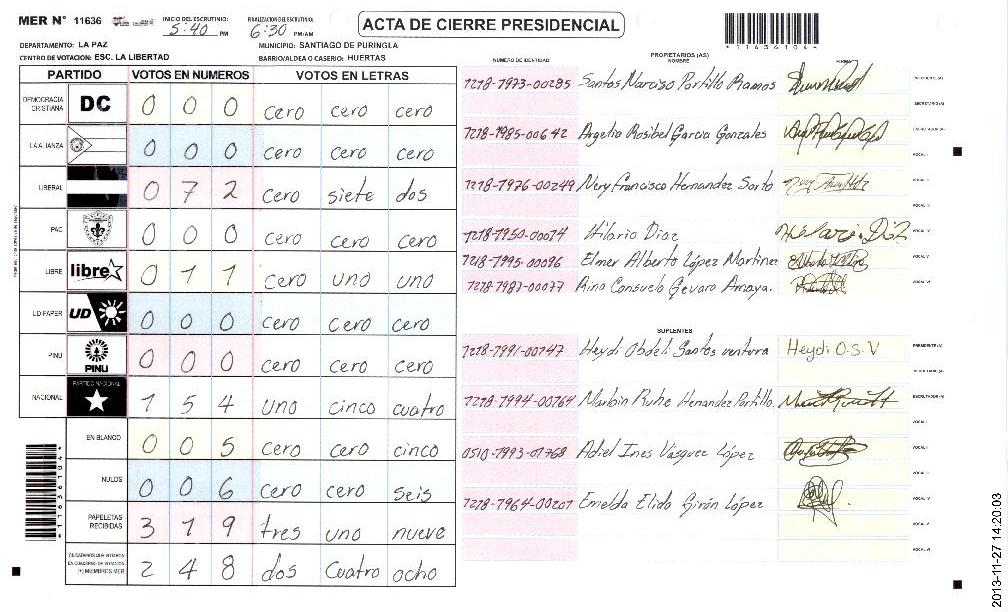 MER N° 11636
INICIO DEL ESCRUTINIO: 5:40 PM
FINALIZACION DEL ESCRUTINIO: 6:30 PM/AM
ACTA DE CIERRE PRESIDENCIAL
116361041
DEPARTAMENTO: LA PAZ
MUNICIPIO: SANTIAGO DE PURINGLA
CENTRO DE VOTACION: ESC. LA LIBERTAD
BARRIO/ALDEA O CASERIO: HUERTAS
PARTIDO VOTOS EN NUMEROS VOTOS EN LETRAS
DEMOCRACIA CRISTIANA DC 0 0 0 cero cero cero
LA ALIANZA 0 0 0 cero cero cero
LIBERAL 0 7 2 cero siete dos
PAC 0 0 0 cero cero cero
LIBRE libre 0 1 1 cero uno uno
UD FAPER UD 0 0 0 cero cero cero
PINU PINU 0 0 0 cero cero cero
NACIONAL PARTIDO NACIONAL 1 5 4 uno cinco cuatro
EN BLANCO 0 0 5 cero cero cinco
NULOS 0 0 6 cero cero seis
PAPELETAS RECIBIDAS 3 1 9 tres uno nueve
CIUDADANOS QUE VOTARON EN CUADERNO DE VOTACION (+) MIEMBROS MER 2 4 8 dos cuatro ocho
116361041
NUMERO DE IDENTIDAD
PROPIETARIOS (AS)
NOMBRE
FIRMA
1218-1973-00285 Santos Narciso Portillo Ramos PRESIDENTE(A)
SECRETARIO(A)
1218-1985-00642 Argelia Rosibel Garcia Gonzales ESCRUTADOR(A)
VOCAL I
1218-1976-00249 Nery Francisco Hernandez Sorto VOCAL II
VOCAL III
1218-1950-00074 Hilario Diaz Hilario Diaz VOCAL IV
1218-1995-00096 Elmer Alberto López Martinez VOCAL V
1218-1987-00077 Rina Consuelo Gevara Amaya. VOCAL VI
SUPLENTES
1218-1991-00147 Heydi Obdeli Santos ventura Heydi O.S.V PRESIDENTE(A)
SECRETARIO(A)
1218-1994-00164 Marbin Hernandez Portillo. ESCRUTADOR(A)
VOCAL I
0510-1993-01768 Adiel Ines Vásquez López VOCAL II
VOCAL III
1218-1964-00207 Emelda Elida Girón López VOCAL IV
VOCAL V
VOCAL VI
2013-11-27 14:20:03